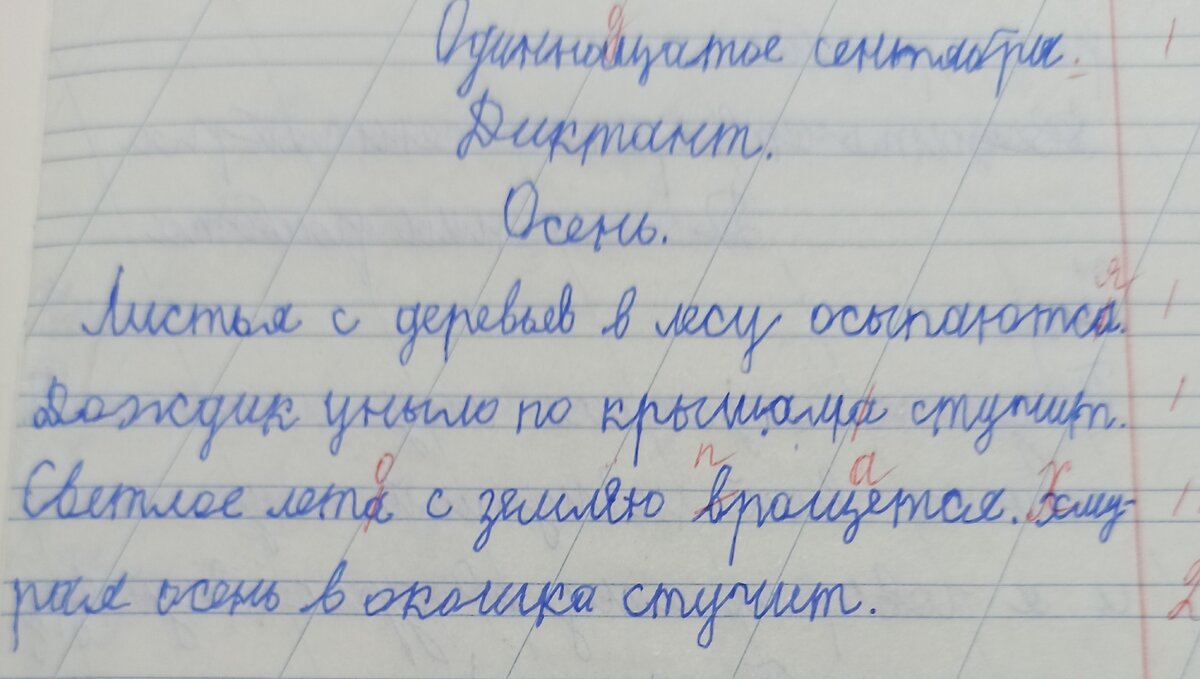 Одиннацатое сентября. 1
Диктант.
Осень.
Листья с деревьев в лесу осыпаютса. 1
Дождик уныло по крышами стучит. 1
Светлое лета с землею врощется. Хму- 1
рая осень в окошка стучит. 2